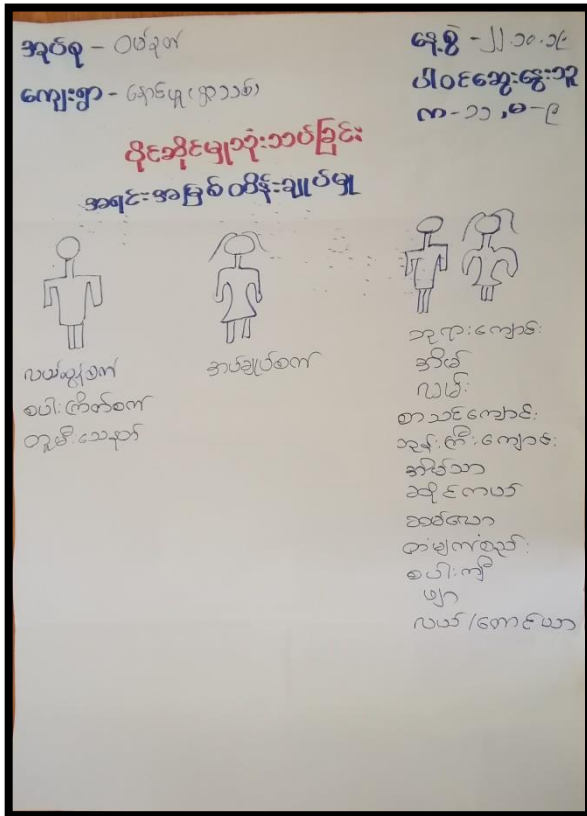 အုပ်စု - ဝမ်းခုတ်
နေ့စွဲ - ၂၂.၁၀.၁၉
ကျေးရွာ - နောင်ယူ (ရွာသစ်)
ပါဝင်ဆွေးနွေးသူ
က - ၁၁, မ - ၉
ပိုင်ဆိုင်မှုသုံးသပ်ခြင်း
အရင်းအမြစ်ထိန်းချုပ်မှု
လယ်ထွန်စက်
စပါးကြိတ်စက်
တူမီးသေနတ်
အပ်ချုပ်စက်
ဘုရားကျောင်း
အိမ်
လမ်း
စာသင်ကျောင်း
ဘုန်းကြီးကျောင်း
အိမ်သာ
ဆိုင်ကယ်
ဓာတ်မျက်စည်း
စပါးကျီ
ဖျာ
လယ်/တောင်ယာ